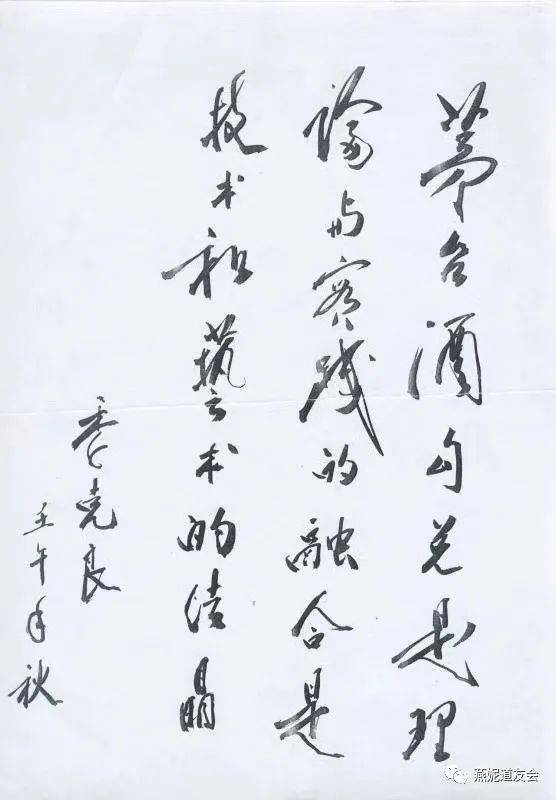 茅台酒勾兑是理
論与實践的融合是
技术和藝术的结晶
季克良
壬午年秋
燕妮道友会